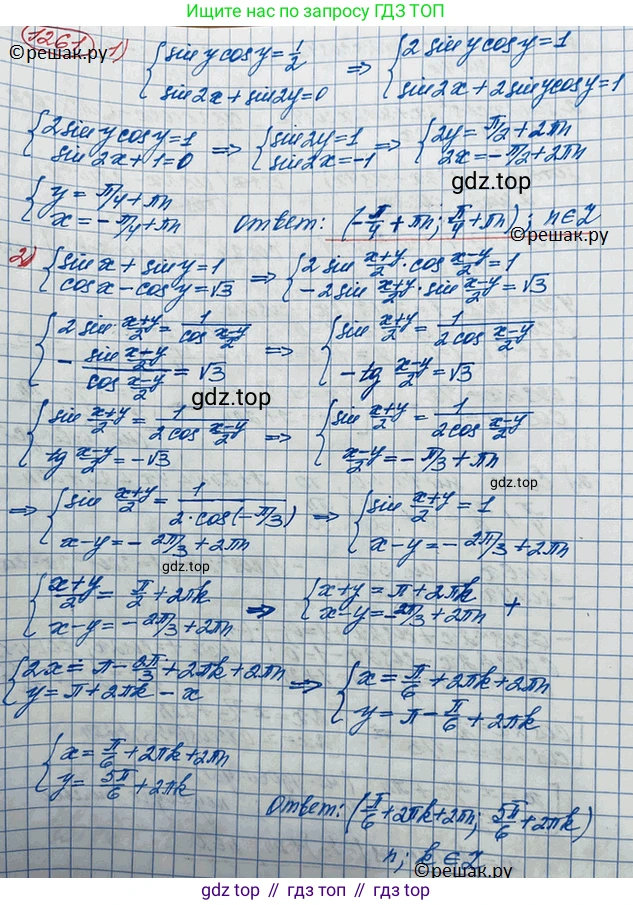 Ищите нас по запросу ГДЗ ТОП
1261 1)
©reшак.ру
{ sin y cos y = 1/2 ; sin 2x + sin 2y = 0 ⇒ { 2 sin y cos y = 1 ; sin 2x + 2 sin y cos y = 1
{ 2 sin y cos y = 1 ; sin 2x + 1 = 0 ⇒ { sin 2y = 1 ; sin 2x = -1 ⇒ { 2y = π/2 + 2πn ; 2x = -π/2 + 2πn
гдз.top
{ y = π/4 + πn ; x = -π/4 + πn
Ответ: (-π/4 + πn; π/4 + πn); n∈Z
©reшак.ру
2) { sin x + sin y = 1 ; cos x - cos y = √3 ⇒ { 2 sin (x+y)/2 · cos (x-y)/2 = 1 ; -2 sin (x+y)/2 · sin (x-y)/2 = √3
{ 2 sin (x+y)/2 = 1/(cos (x-y)/2) ; - (sin (x+y)/2)/(cos (x-y)/2) = √3 ⇒ { sin (x+y)/2 = 1/(2 cos (x-y)/2) ; -tg (x-y)/2 = √3
гдз.top
{ sin (x+y)/2 = 1/(2 cos (x-y)/2) ; tg (x-y)/2 = -√3 ⇒ { sin (x+y)/2 = 1/(2 cos (x-y)/2) ; (x-y)/2 = -π/3 + πn
©reшак.ру
⇒ { sin (x+y)/2 = 1/(2·cos(-π/3)) ; x-y = -2π/3 + 2πn ⇒ { sin (x+y)/2 = 1 ; x-y = -2π/3 + 2πn
гдз.top
{ (x+y)/2 = π/2 + 2πk ; x-y = -2π/3 + 2πn ⇒ { x+y = π + 2πk ; x-y = -2π/3 + 2πn +
{ 2x = π - 2π/3 + 2πk + 2πn ; y = π + 2πk - x ⇒ { x = π/6 + 2πk + 2πn ; y = π - π/6 + 2πk
{ x = π/6 + 2πk + 2πn ; y = 5π/6 + 2πk
Ответ: (π/6 + 2πk + 2πn; 5π/6 + 2πk)
n; k ∈ Z
©reшак.ру
gdz top // гдз топ // gdz.top